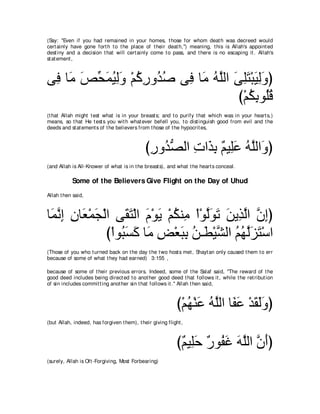 (Say: "Even if you had remained in your homes, those for whom death was decreed would
certainly have gone forth to the place of their death,'') meaning, this is Allah's appointed
destiny and a decision that will certainly come to pass, and there is no escaping it. Allah's
statement,
﴿وَلِيَبْتَلِىَ اللَّهُ مَا فِى صُدُورِكُمْ وَلِيُمَحِّصَ مَا فِى
قُلُوبِكُمْ﴾
(that Allah might test what is in your breasts; and to purify that which was in your hearts,)
means, so that He tests you with whatever befell you, to distinguish good from evil and the
deeds and statements of the believers from those of the hypocrites,
﴿وَاللَّهُ عَلِيمٌ بِذَاتِ الصُّدُورِ﴾
(and Allah is All-Knower of what is in the breasts), and what the hearts conceal.
Some of the Believers Give Flight on the Day of Uhud
Allah then said,
﴿إِنَّ الَّذِينَ تَوَلَّوْاْ مِنكُمْ يَوْمَ الْتَقَى الْجَمْعَانِ إِنَّمَا
اسْتَزَلَّهُمُ الشَّيْطَـنُ بِبَعْضِ مَا كَسَبُواْ﴾
(Those of you who turned back on the day the two hosts met, Shaytan only caused them to err
because of some of what they had earned) 3:155,
because of some of their previous errors. Indeed, some of the Salaf said, "The reward of the
good deed includes being directed to another good deed that follows it, while the retribution
of sin includes committing another sin that follows it.'' Allah then said,
﴿وَلَقَدْ عَفَا اللَّهُ عَنْهُمْ﴾
(but Allah, indeed, has forgiven them), their giving flight,
﴿أَنَّ اللَّهَ غَفُورٌ حَلِيمٌ﴾
(surely, Allah is Oft-Forgiving, Most Forbearing)